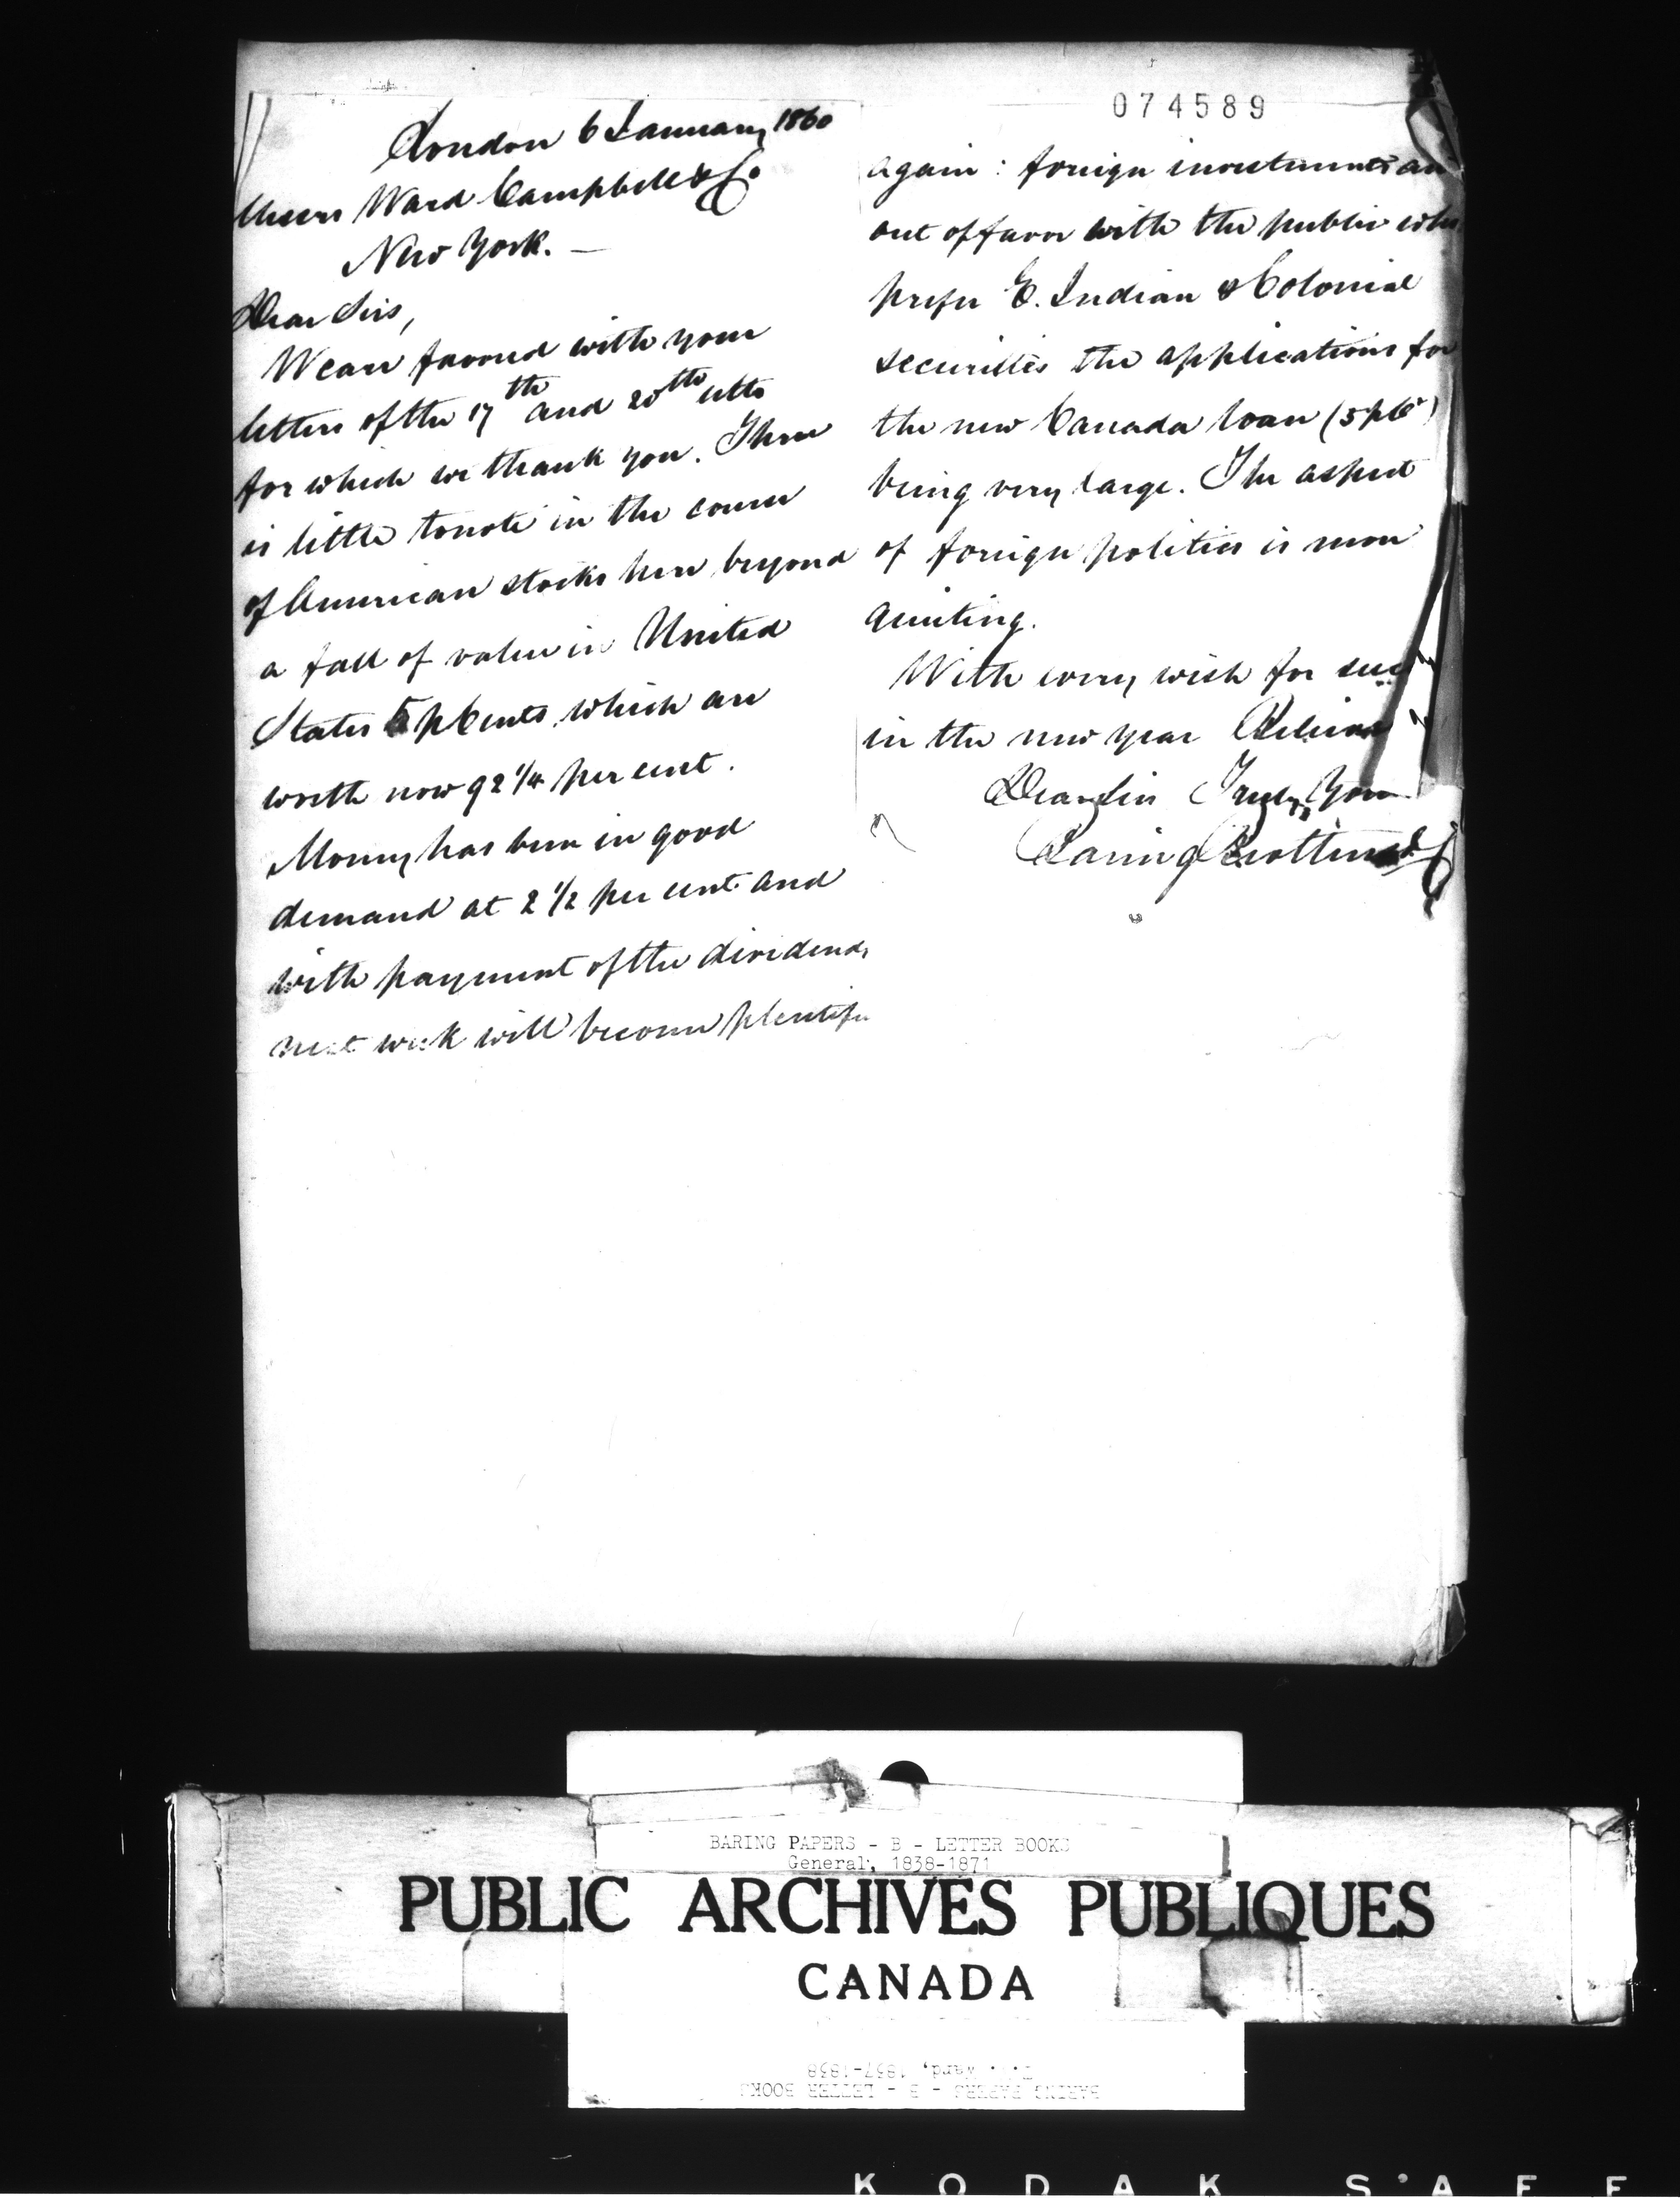 London 6 January 1860
Messrs Ward Campbell & Co
New York. —
Dear Sirs,
We are favored with your
letters of the 17th and 20th ulto
for which we thank you. There
is little to note in the course
of American stocks here beyond
a fall of value in United
States 5 p Cents, which are
worth now 92 1/4 per cent.
Money has been in good
demand at 2 1/2 per cent and
with payment of the dividends
next week will become plentiful
074589
again: foreign investments are
out of favor with the public who
prefer E. Indian & Colonial
securities the applications for
the new Canada loan (5 p Ct)
being very large. The aspect
of foreign politics is more
quieting.
With every wish for
in the new year Believe
Dear Sirs Truly Yours
Baring Brothers & Co
BARING PAPERS - B - LETTER BOOKS
General, 1838-1871
PUBLIC ARCHIVES PUBLIQUES
CANADA
Ward, 1837-1838
BARING PAPERS - B - LETTER BOOKS
KODAK SAFE